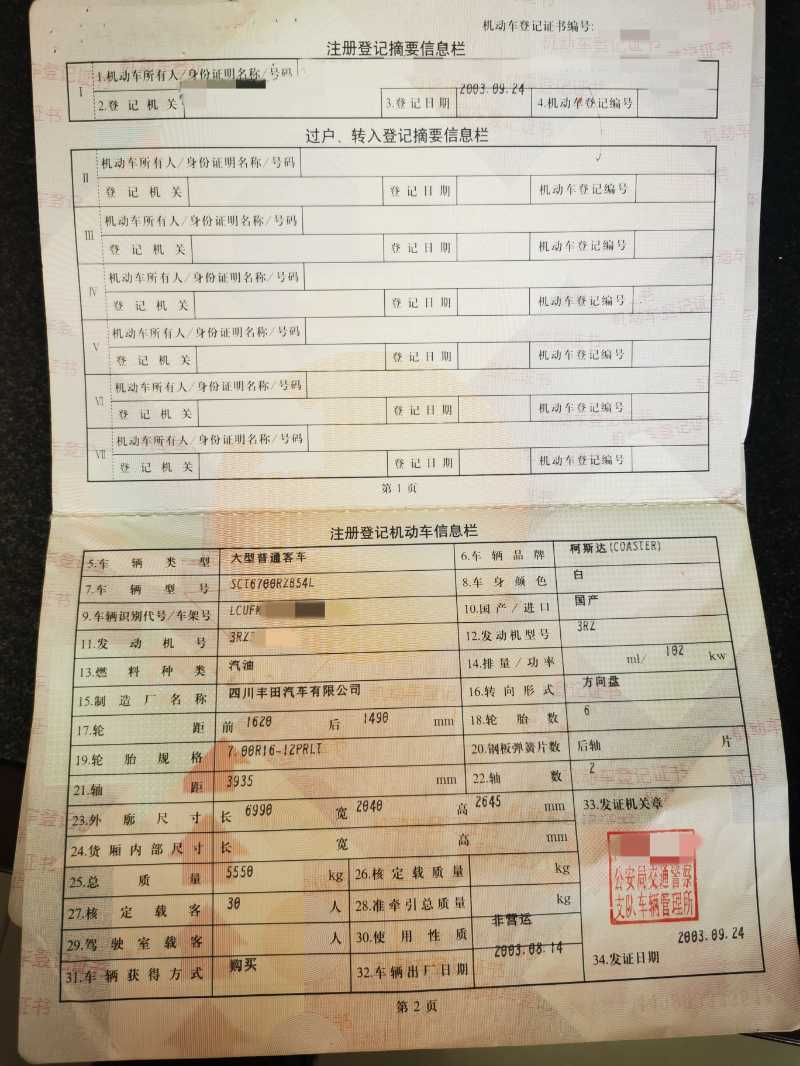 机动车登记证书编号:
注册登记摘要信息栏
I 1.机动车所有人/身份证明名称/号码
2.登记机关 3.登记日期 2003.09.24 4.机动车登记编号
过户、转入登记摘要信息栏
II 机动车所有人/身份证明名称/号码
登记机关 登记日期 机动车登记编号
III 机动车所有人/身份证明名称/号码
登记机关 登记日期 机动车登记编号
IV 机动车所有人/身份证明名称/号码
登记机关 登记日期 机动车登记编号
V 机动车所有人/身份证明名称/号码
登记机关 登记日期 机动车登记编号
VI 机动车所有人/身份证明名称/号码
登记机关 登记日期 机动车登记编号
VII 机动车所有人/身份证明名称/号码
登记机关 登记日期 机动车登记编号
第1页
注册登记机动车信息栏
5.车辆类型 大型普通客车 6.车辆品牌 柯斯达(COASTER)
7.车辆型号 SCT6700RZB54L 8.车身颜色 白
9.车辆识别代号/车架号 LCUFK 10.国产/进口 国产
11.发动机号 3RZ 12.发动机型号 3RZ
13.燃料种类 汽油 14.排量/功率 ml/ 102 kw
15.制造厂名称 四川丰田汽车有限公司 16.转向形式 方向盘
17.轮距 前 1620 后 1490 mm 18.轮胎数 6
19.轮胎规格 7.00R16-12PRLT 20.钢板弹簧片数 后轴 片
21.轴距 3935 mm 22.轴数 2
23.外廓尺寸 长 6990 宽 2040 高 2645 mm 33.发证机关章
24.货厢内部尺寸 长 宽 高 mm
25.总质量 5550 kg 26.核定载质量 kg
27.核定载客 30 人 28.准牵引总质量 kg
公安局交通警察
支队车辆管理所
29.驾驶室载客 人 30.使用性质 非营运
31.车辆获得方式 购买 32.车辆出厂日期 2003.08.14 34.发证日期 2003.09.24
第2页